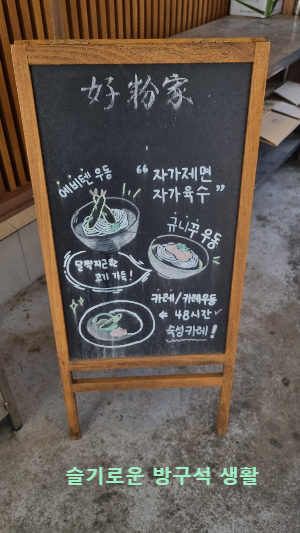 好粉家
에비텐 우동
“ 자가제면
자가육수 ”
규니꾸 우동
달짝지근한
고기 가득!
카레/카레우동
← 48시간
숙성카레!
슬기로운 방구석 생활